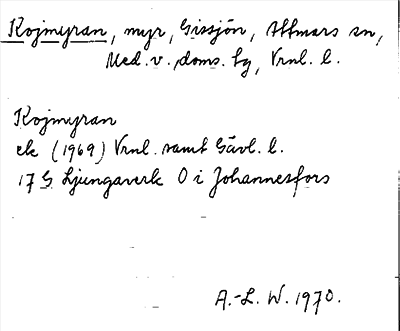 Kojmyran, myr, Gissjön, Attmars sn,
Med. v. doms. fg, Vrnl. l.
Kojmyran
ek (1969) Vrnl. samt Gävl. l.
17 G Ljungaverk O i Johannesfors
A.-L. W. 1970.